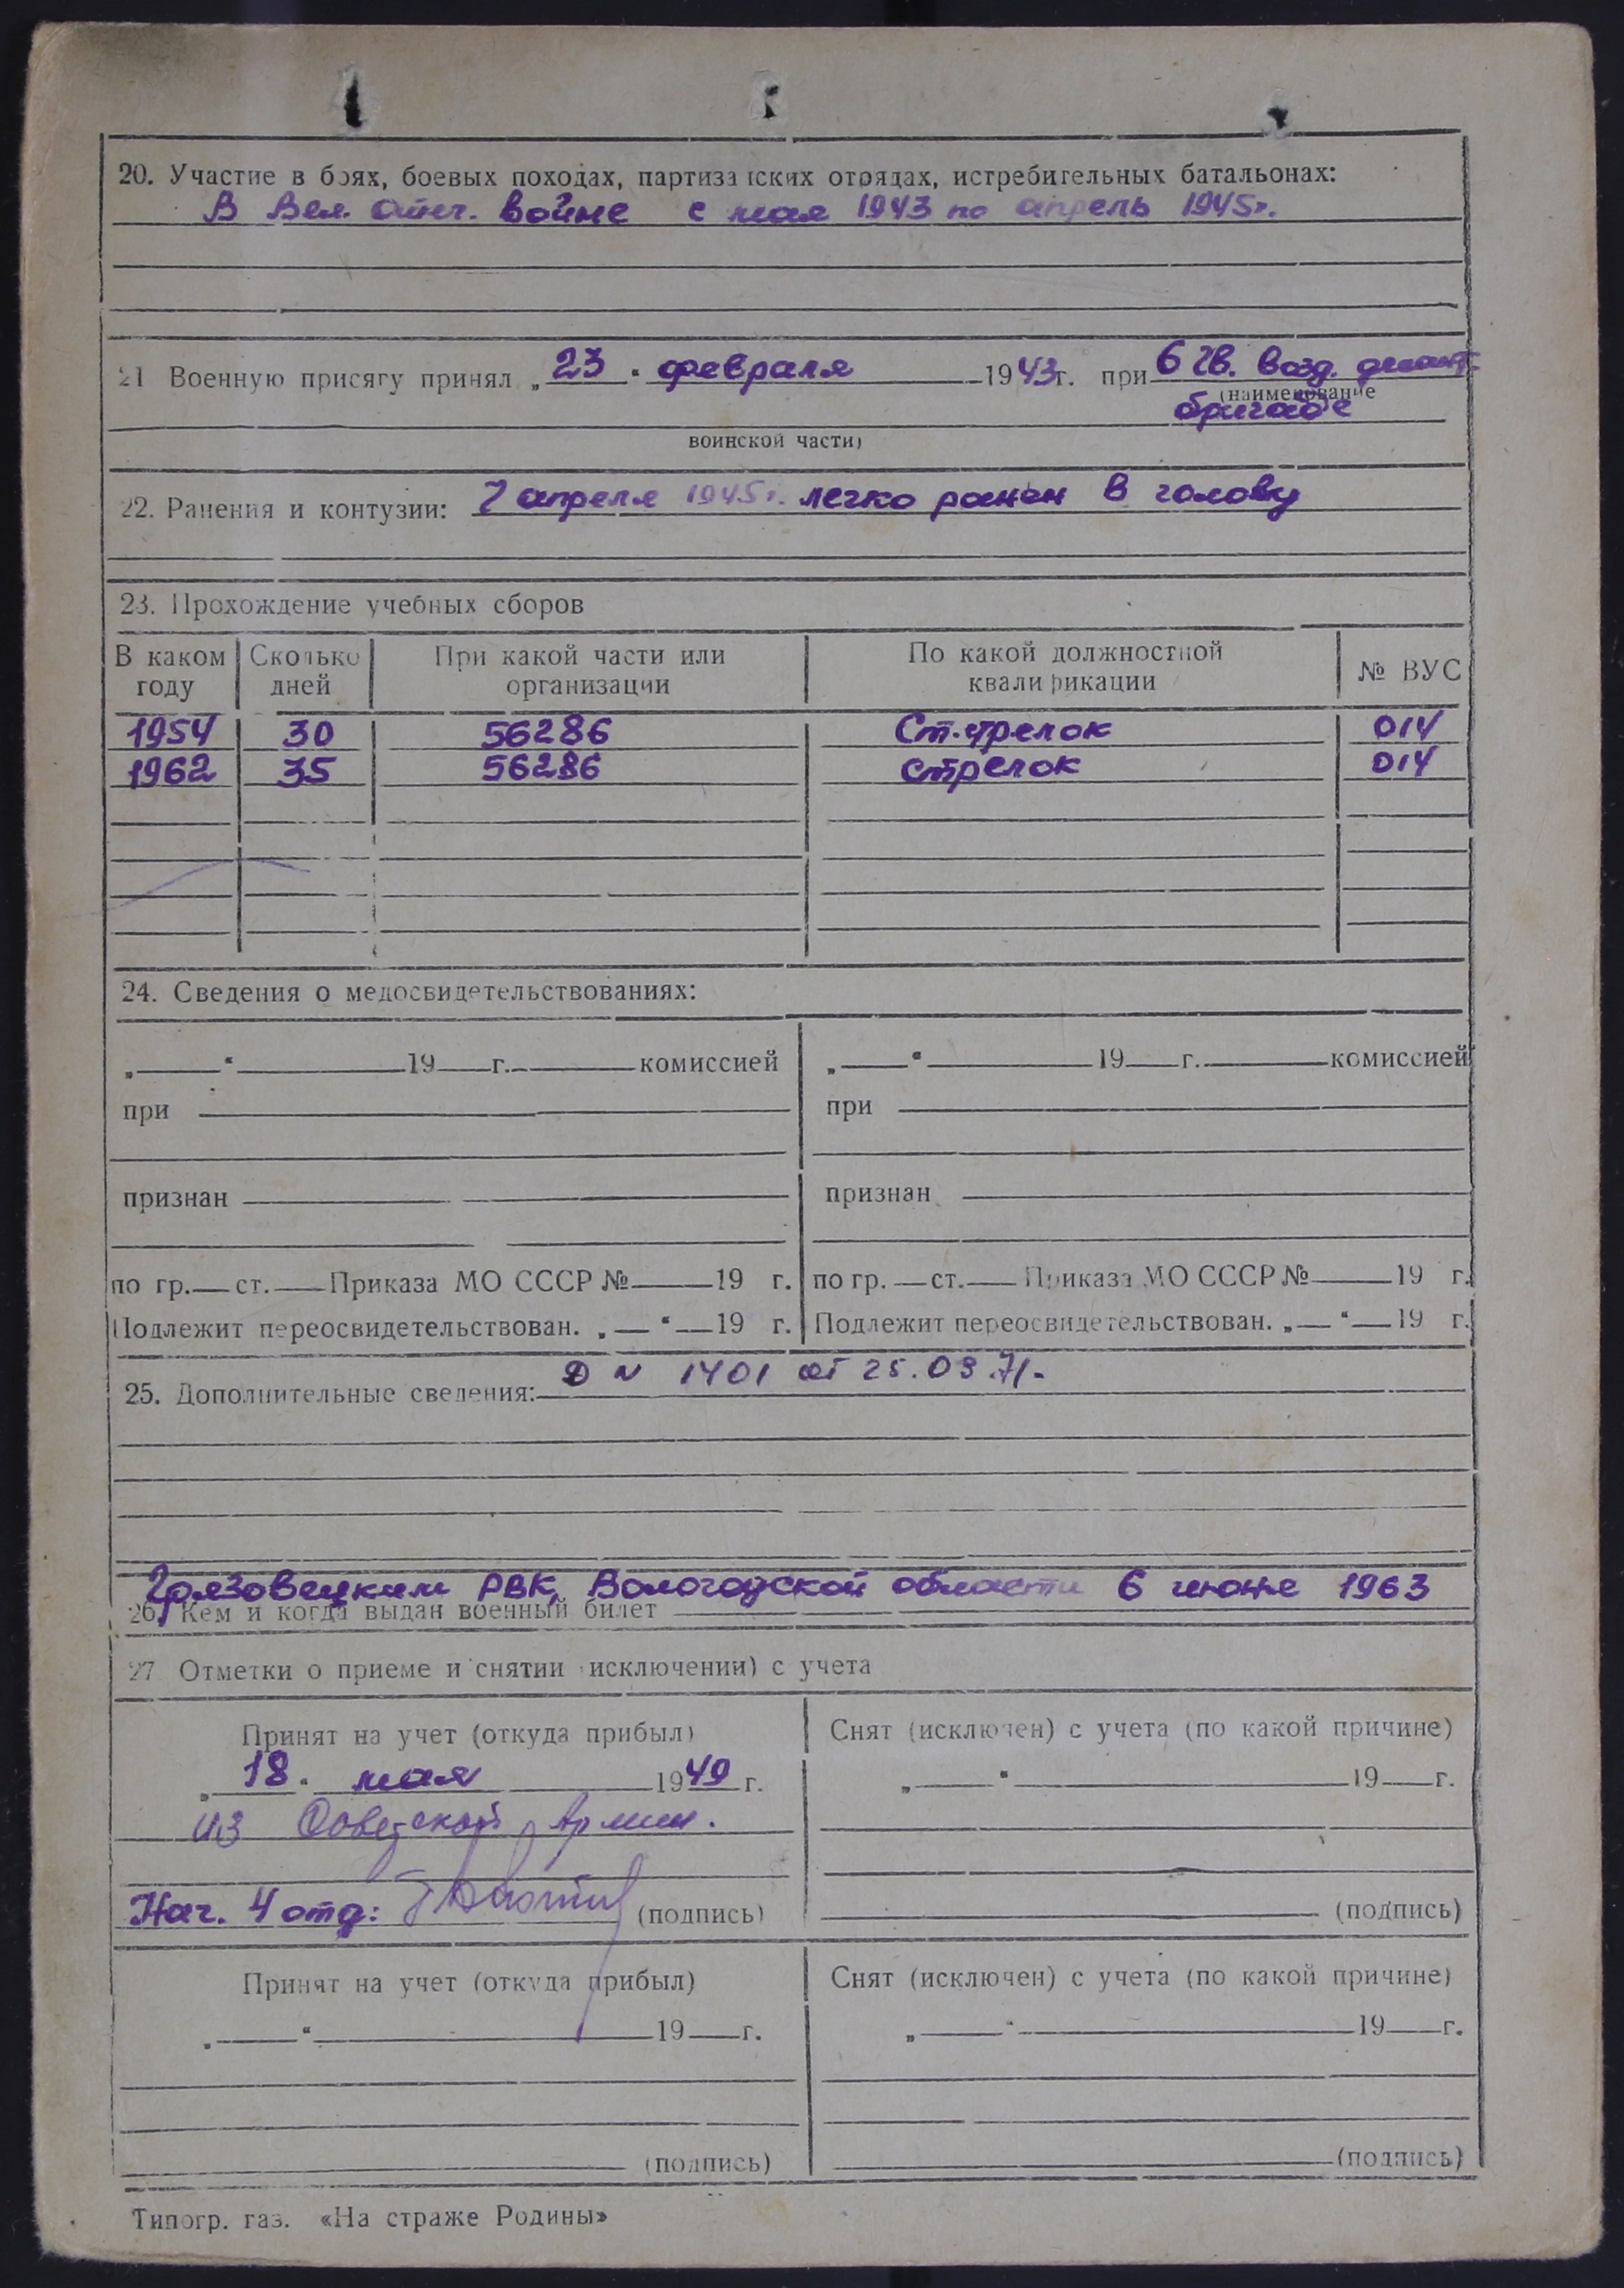 20. Участие в боях, боевых походах, партизанских отрядах, истребительных батальонах:
В Вел. отеч. войне с мая 1943 по апрель 1945г.
21 Военную присягу принял „23“ февраля 1943г. при 6 гв. возд. десант.
(наименование
бригаде
воинской части)
22. Ранения и контузии: 7 апреля 1945г. легко ранен в голову
23. Прохождение учебных сборов
В каком году Сколько дней При какой части или организации По какой должностной квалификации № ВУС
1954 30 56286 Ст. стрелок 014
1962 35 56286 стрелок 014
24. Сведения о медосвидетельствованиях:
„ “ 19 г. комиссией „ “ 19 г. комиссией
при при
признан признан
по гр. ст. Приказа МО СССР № 19 г. по гр. ст. Приказа МО СССР № 19 г.
Подлежит переосвидетельствован. „ “ 19 г. Подлежит переосвидетельствован. „ “ 19 г.
Д № 1401 от 25.03.71.
25. Дополнительные сведения:
Грязовецким РВК, Вологодской области 6 июне 1963
26. Кем и когда выдан военный билет
27 Отметки о приеме и снятии исключении) с учета
Принят на учет (откуда прибыл) Снят (исключен) с учета (по какой причине)
„18“ мая 1949 г. „ “ 19 г.
из Советской Армии.
Нач. 4 отд: (подпись) (подпись)
Принят на учет (откуда прибыл) Снят (исключен) с учета (по какой причине)
„ “ 19 г. „ “ 19 г.
(подпись) (подпись)
Типогр. газ. «На страже Родины»